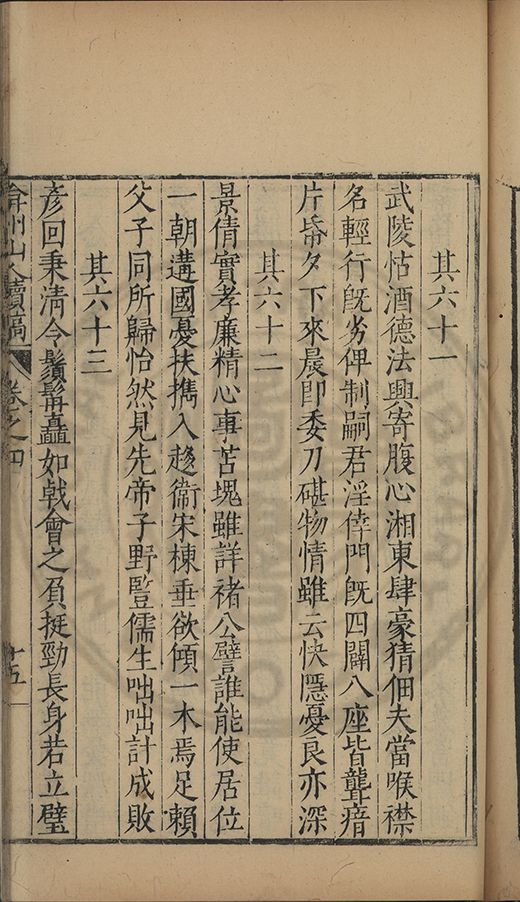 其六十一
武陵怙酒德法興寄腹心湘東肆豪猜佃夫當喉襟
名輕行旣劣俾制嗣君淫倖門旣四闢八座皆聾瘖
片帋夕下來晨即委刀碪物情雖云快隱憂良亦深
其六十二
景倩實孝廉精心事苫塊雖詳褚公譬誰能使居位
一朝遘國憂扶擕入趍衞宋棟垂欲傾一木焉足賴
父子同所歸怡然見先帝子野豎儒生咄咄計成敗
其六十三
彥回秉清令鬚髯矗如戟會之負挺勁長身若立璧
弇州山人續稿 卷之四 十五